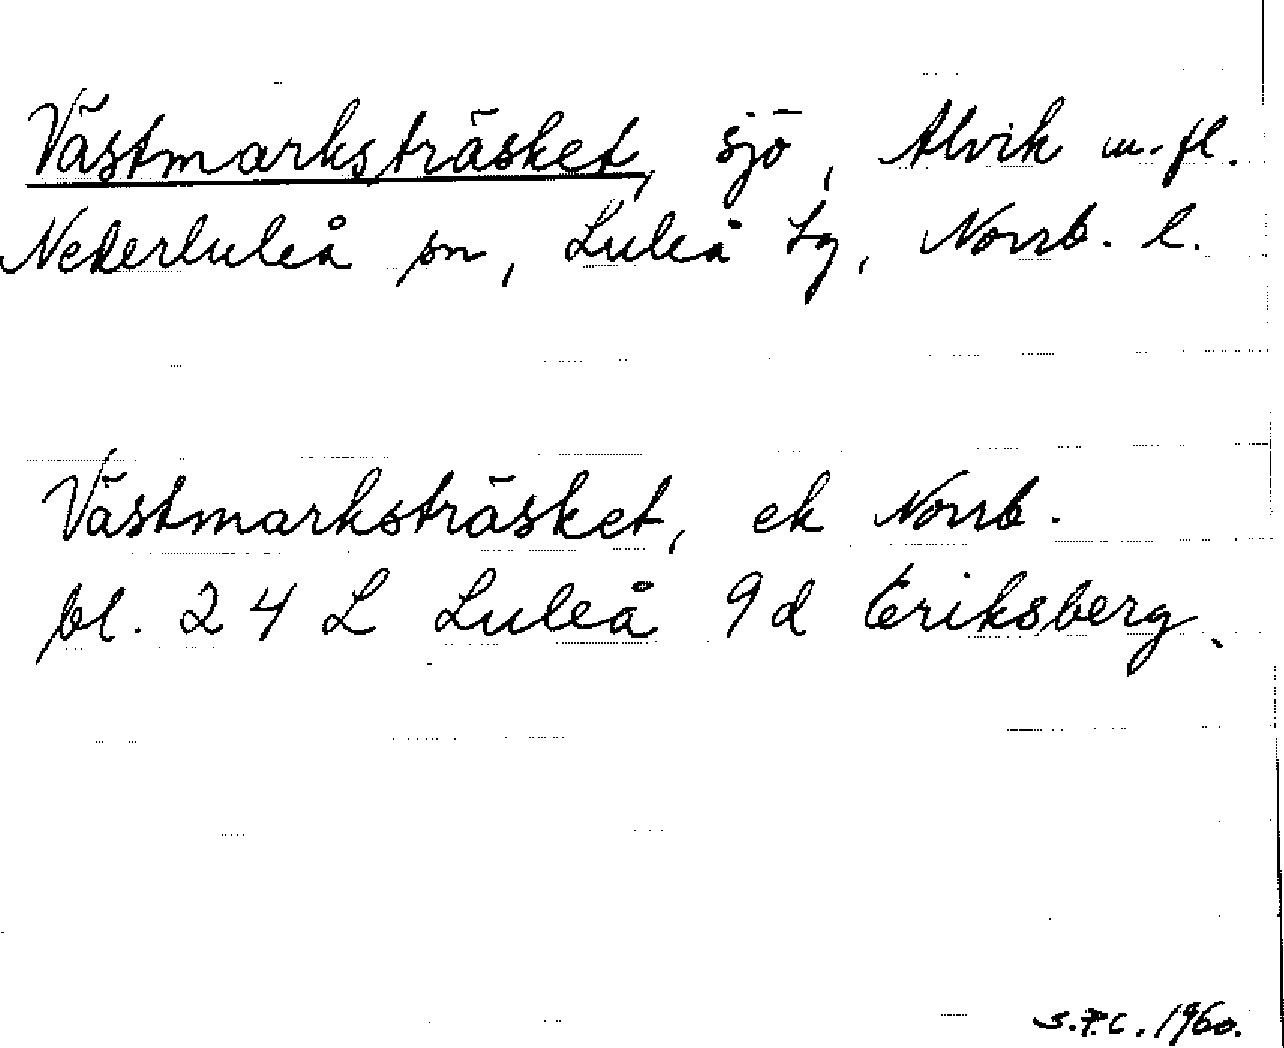 Västmarksträsket, sjö, Alvik m.fl.
Nederluleå sn, Luleå tg, Norrb. l.
Västmarksträsket, ek Norrb.
bl. 24 L Luleå 9d Eriksberg.
S.F.C. 1960.